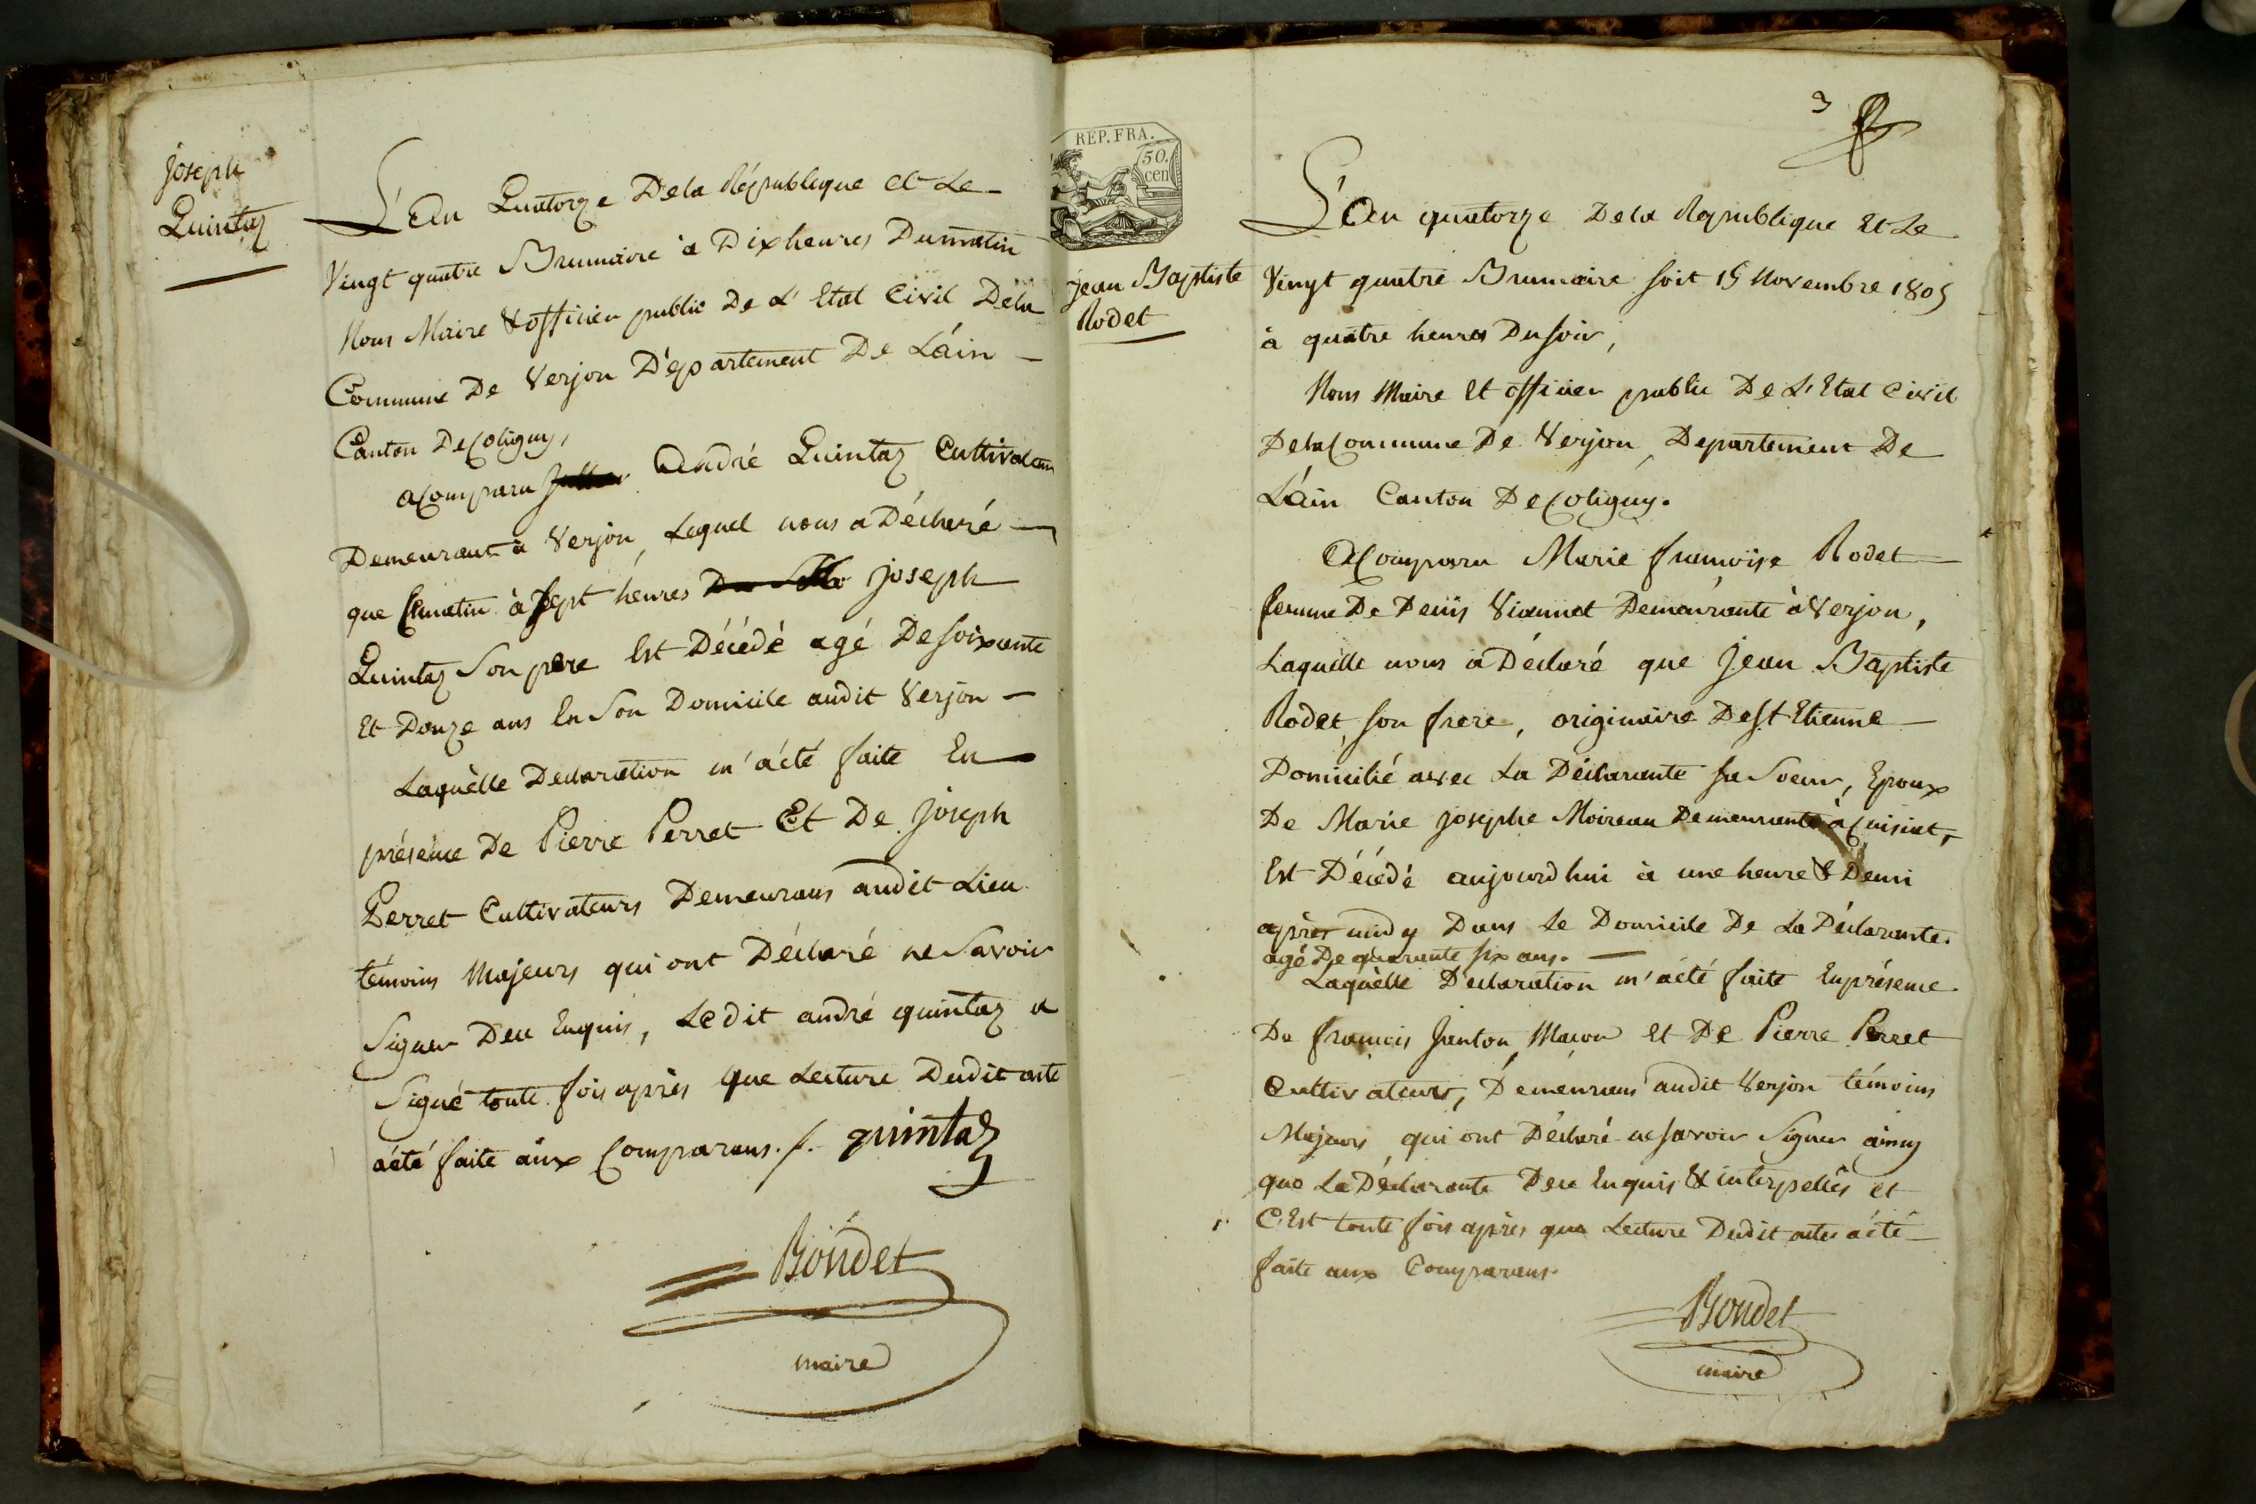 Joseph
Quintaz
L'An Quatorze De la République et Le
Vingt quatre Brumaire à Dix heures Du matin
Nous Maire & officier public De L'Etat Civil De la
Commune De Verjon Département De L'áin
Canton De Coligny,
a Comparu André Quintaz Cultivateur
Demeurant à Verjon, Lequel nous a Déclaré
que Ce matin à Sept heures Joseph
Quintaz Son pere Est Décédé agé De soixante
Et Douze ans En Son Domicile audit Verjon
Laquèlle Declaration m'a été faite En
présence De Pierre Perret Et De Joseph
Perret Cultivateurs Demeurans audit Lieu
témoins Majeurs qui ont Déclaré ne Savoir
Signer De ce Enquis, Le dit andré quintaz a
Signé toute fois après que Lecture Dudit acte
a été faite aux Comparans. /. quintaz
Bondet
maire
3
REP. FRA.
50.
cen
Jean Baptiste
Rodet
L'An quatorze De la Republique Et Le
Vingt quatre Brumaire soit 15 Novembre 1805
à quatre heures Du soir,
Nous Maire Et officier public De L'Etat Civil
De la Commune De Verjon, Departement De
L'áin Canton De Coligny.
A Comparu Marie françoise Rodet
femme De Denis Viannet Demeurante à Verjon,
Laquelle nous a Déclaré que Jean Baptiste
Rodet, son frere, originaire De St Etienne
Domicilié avec La Déclarante sa Soeur, Epoux
De Marie Josephe Moireau Demeurante à Cuisiat,
Est Décédé aujourdhui à une heure & Demi
après midy Dans le Domicile De La Déclarante.
agé De quarante six ans.
Laquèlle Déclaration m'a été faite En présence
De françois Janton, Maçon Et De Pierre Perret
Cultivateur, Demeurans audit Verjon témoins
Majeurs, qui ont Déclaré ne savoir Signer ainsy
que La Déclarante De ce Enquis & interpellés et
C'Est toute fois après que Lecture Dudit acte a été
faite aux Comparans.
Bondet
maire